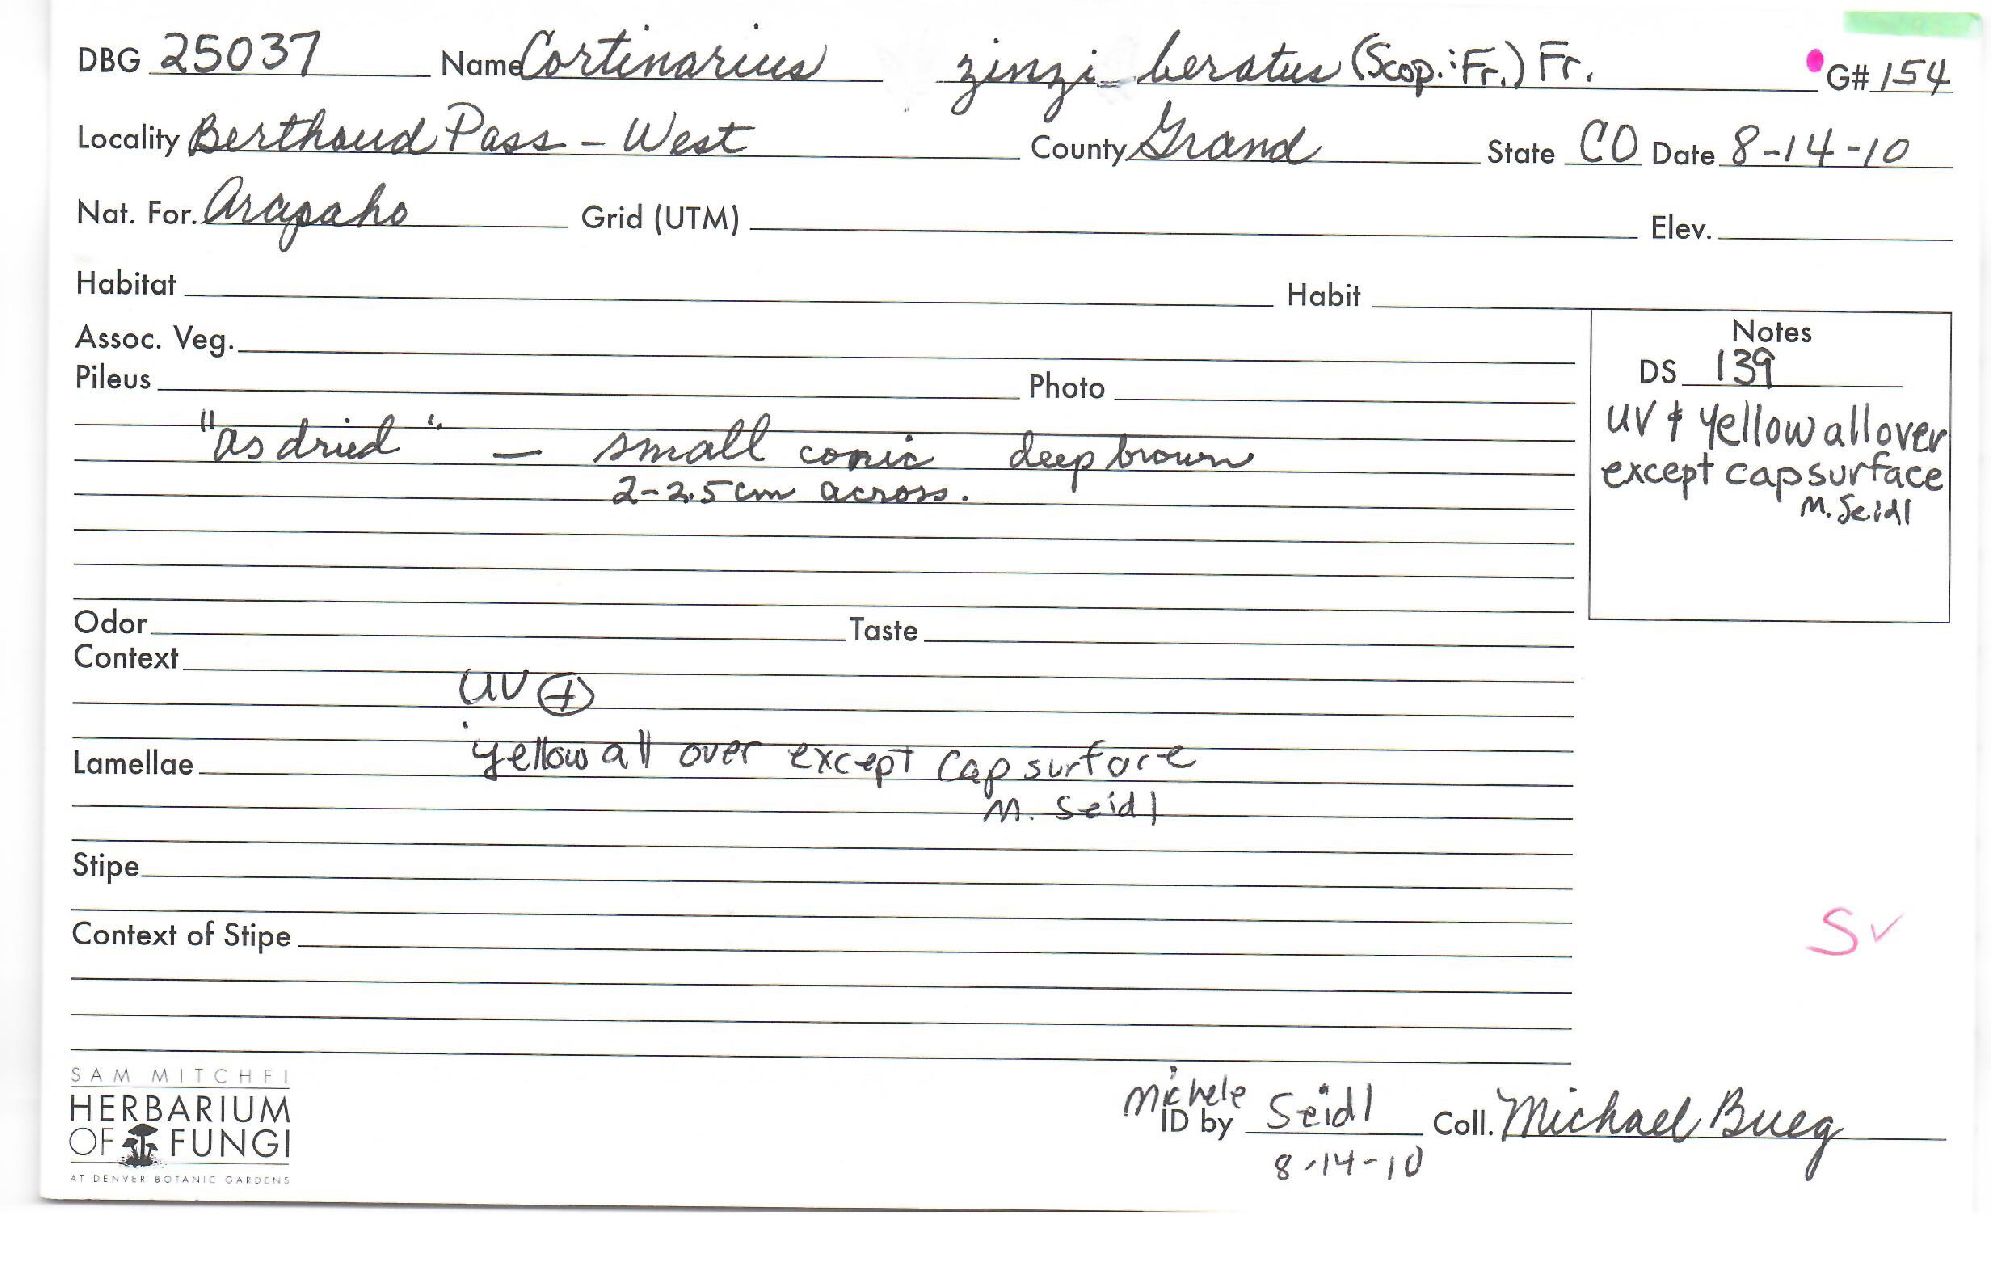 DBG 25037 Name Cortinarius zinzi beratus (Scop.:Fr.) Fr. G# 154
Locality Berthoud Pass - West County Grand State CO Date 8-14-10
Nat. For. Arapaho Grid (UTM) Elev.
Habitat Habit
Assoc. Veg. Notes
Pileus Photo DS 139
"as dried" — small conic deep brown UV + yellow all over
2-2.5 cm across. except cap surface
M. Seidl
Odor Taste
Context
UV +
Lamellae yellow all over except cap surface
M. Seidl
Stipe
Context of Stipe S✓
SAM MITCHEL
HERBARIUM
OF FUNGI
AT DENVER BOTANIC GARDENS
Michele
ID by Seidl Coll. Michael Bueg
8-14-10